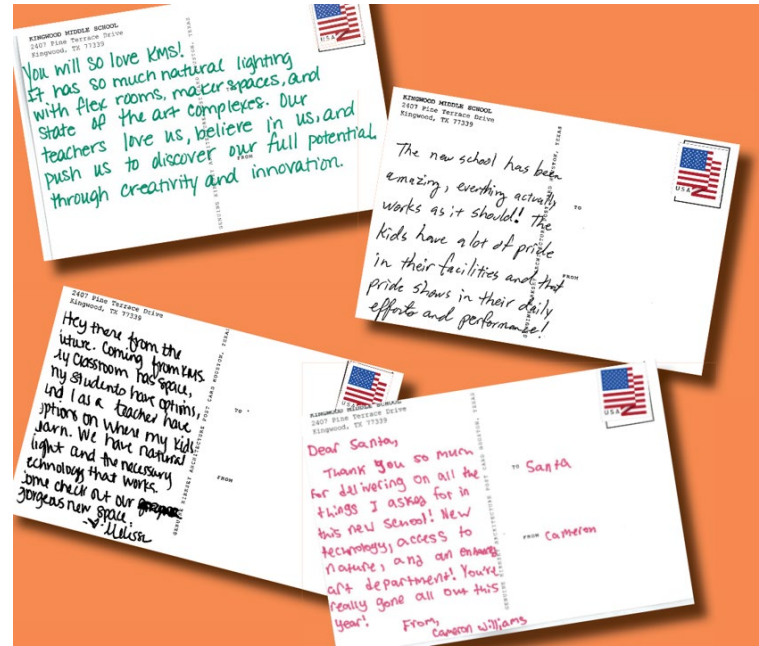 KINGWOOD MIDDLE SCHOOL
2407 Pine Terrace Drive
Kingwood, TX 77339
You will so love KMS!
It has so much natural lighting
with flex rooms, makerspaces, and
state of the art complexes. Our
teachers love us, believe in us, and
push us to discover our full potential
through creativity and innovation.
FROM
USA
KINGWOOD MIDDLE SCHOOL
2407 Pine Terrace Drive
Kingwood, TX 77339
The new school has been
amazing, everthing actually
works as it should! The
kids have a lot of pride
in their facilities and that
pride shows in their daily
efforts and performance!
TO
FROM
USA
2407 Pine Terrace Drive
Kingwood, TX 77339
Hey there from the
uture. Coming from KMS.
ly classroom has space,
ny students have options,
and I as a teacher have
options on where my kids
learn. We have natural
light and the necessary
echnology that works.
ome check out our
gorgeous new space.
Melissa
GENUINE KIRKSEY ARCHITECTURE POST CARD HOUSTON, TEXAS
TO
FROM
USA
KINGWOOD MIDDLE SCHOOL
2407 Pine Terrace Drive
Kingwood, TX 77339
Dear Santa,
Thank you so much
for delivering on all the
things I asked for in
this new school! New
technology, access to
nature, and an enhanced
art department! You're
really gone all out this
year!
From,
Cameron Williams
GENUINE KIRKSEY ARCHITECTURE POST CARD HOUSTON, TEXAS
TO Santa
FROM Cameron
USA